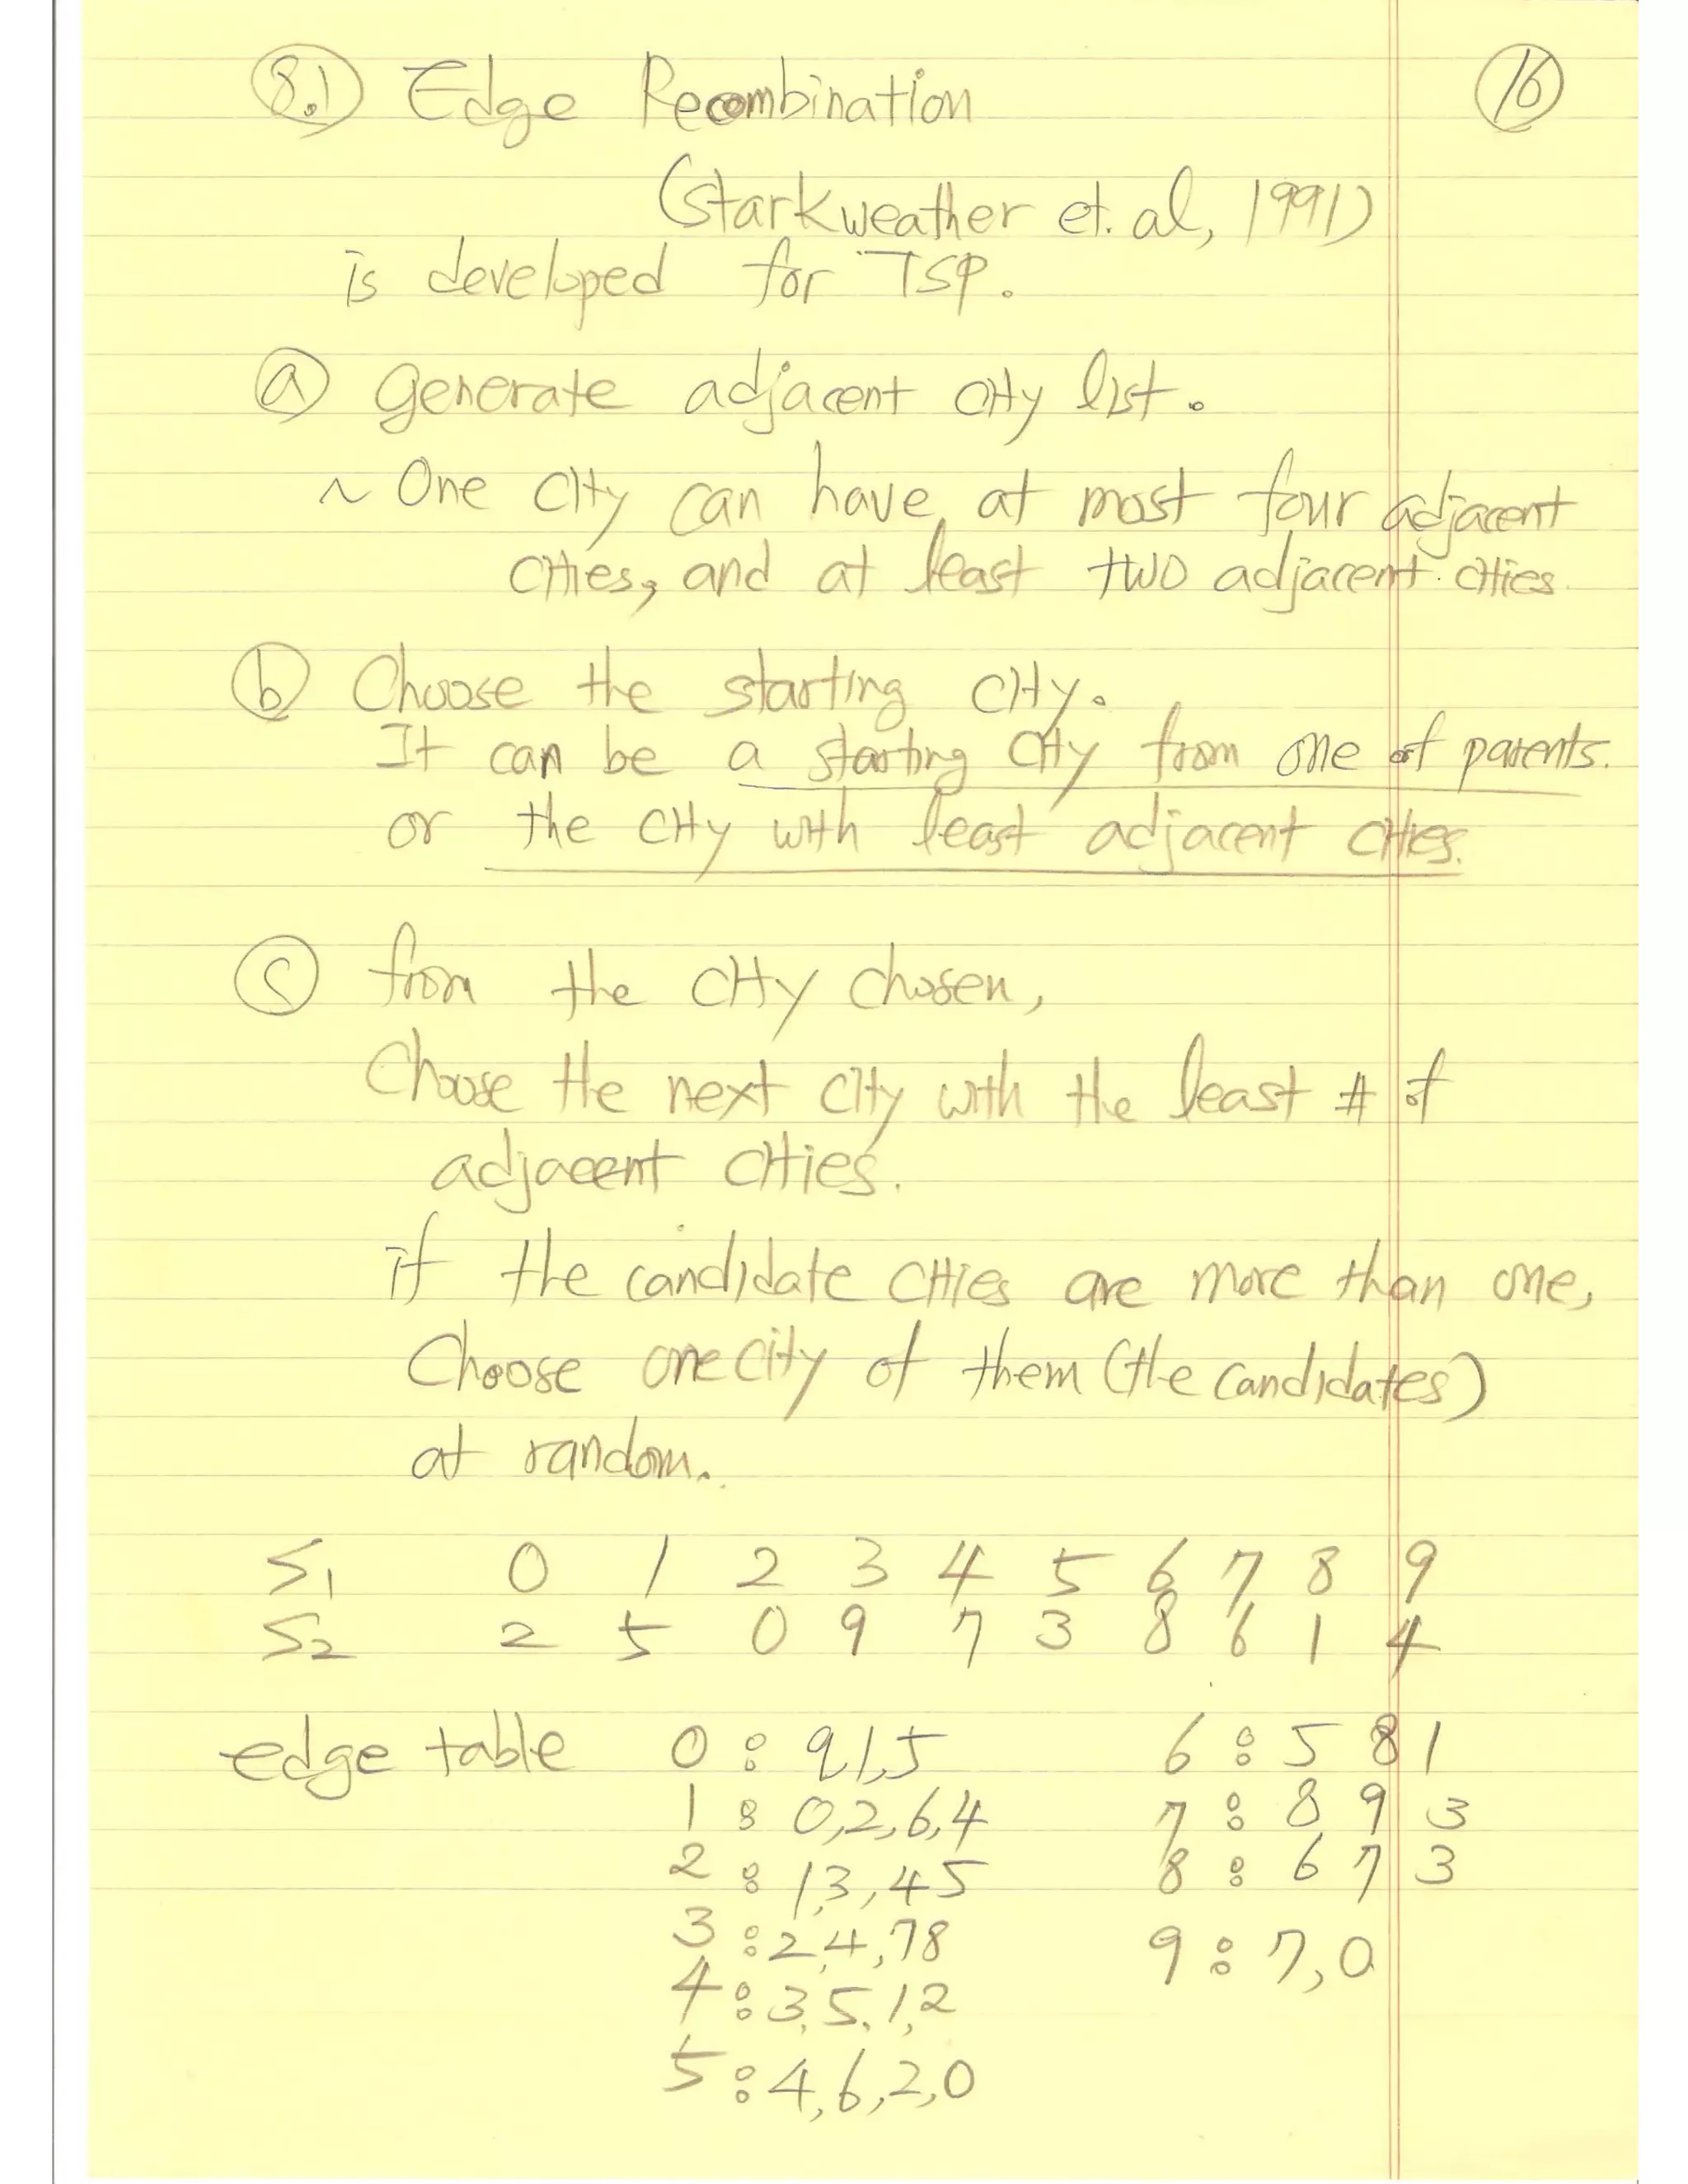 8.1 Edge Recombination 16
(Starkweather et. al, 1991)
is developed for TSP.
a generate adjacent city list.
~ One city can have at most four adjacent
cities, and at least two adjacent cities.
b Choose the starting city.
It can be a starting city from one of parents.
or the city with least adjacent cities.
c from the city chosen,
Choose the next city with the least # of
adjacent cities.
if the candidate cities are more than one,
Choose one city of them (the candidates)
at random.
S1 0 1 2 3 4 5 6 7 8 9
S2 2 5 0 9 7 3 8 6 1 4
edge table 0 : 9 1,5 6 : 5 8 1
1 : 0,2,6,4 7 : 8 9 3
2 : 1,3,4 5 8 : 6 7 3
3 : 2,4,7 8 9 : 7,0
4 : 3,5,1,2
5 : 4,6,2,0